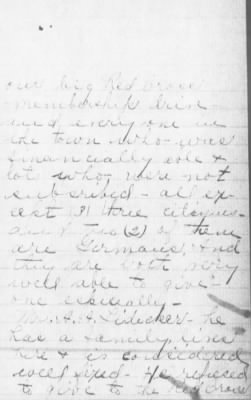 our big Red Cross
membership driv-
and everyone in
the town who was
financially able &
lots who were not
subscribed - all ex
cept (3) three citizens
and two (2) of them
are Germans, and
they are both very
well able to give
one especially -
Mr. A. A. he
has a family tree
here & is considered
well fixed - He refused
to give to the Red Cross